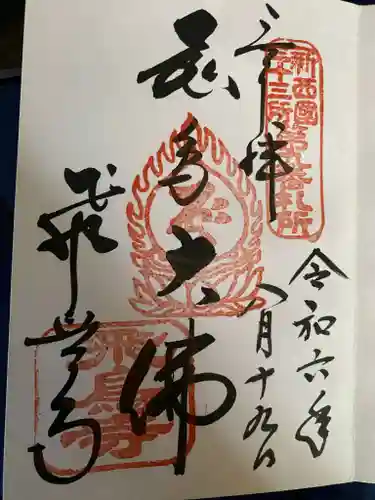 新西國
三十三所
第九番札所
奉拝
令和六年
八月十九日
飛鳥大佛
飛鳥寺
飛鳥寺